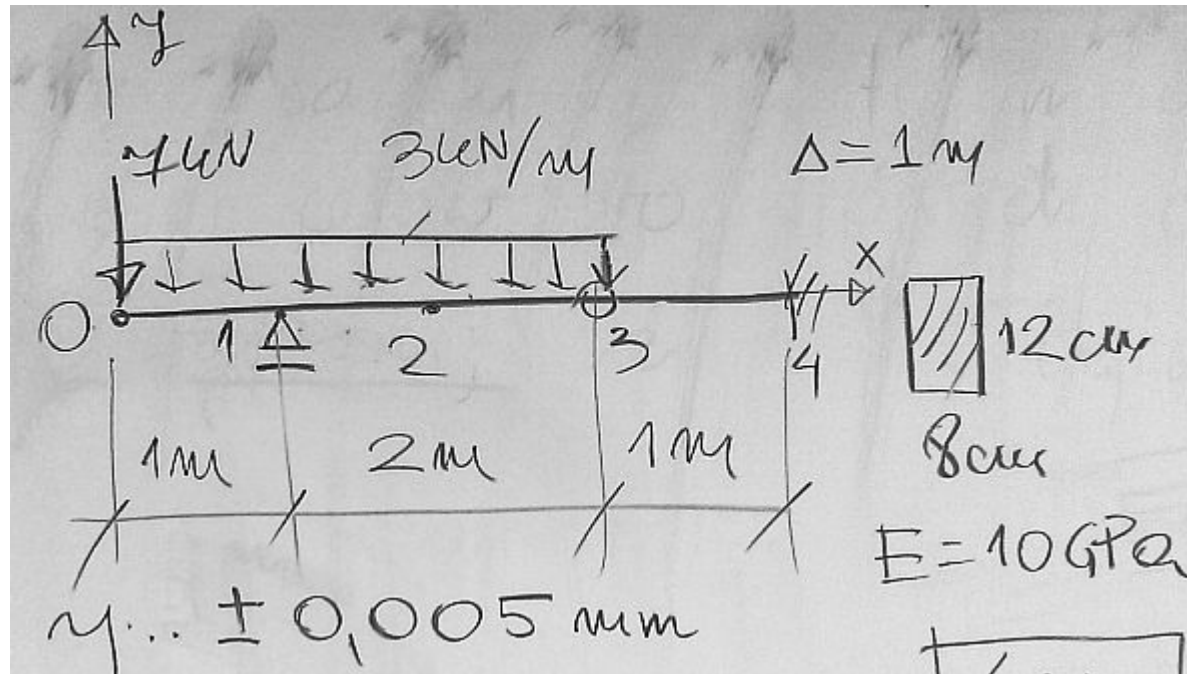 y
7kN 3kN/m Δ=1m
x
0 1 2 3 4 12cm
1m 2m 1m 8cm
E=10GPa
y... ± 0,005 mm